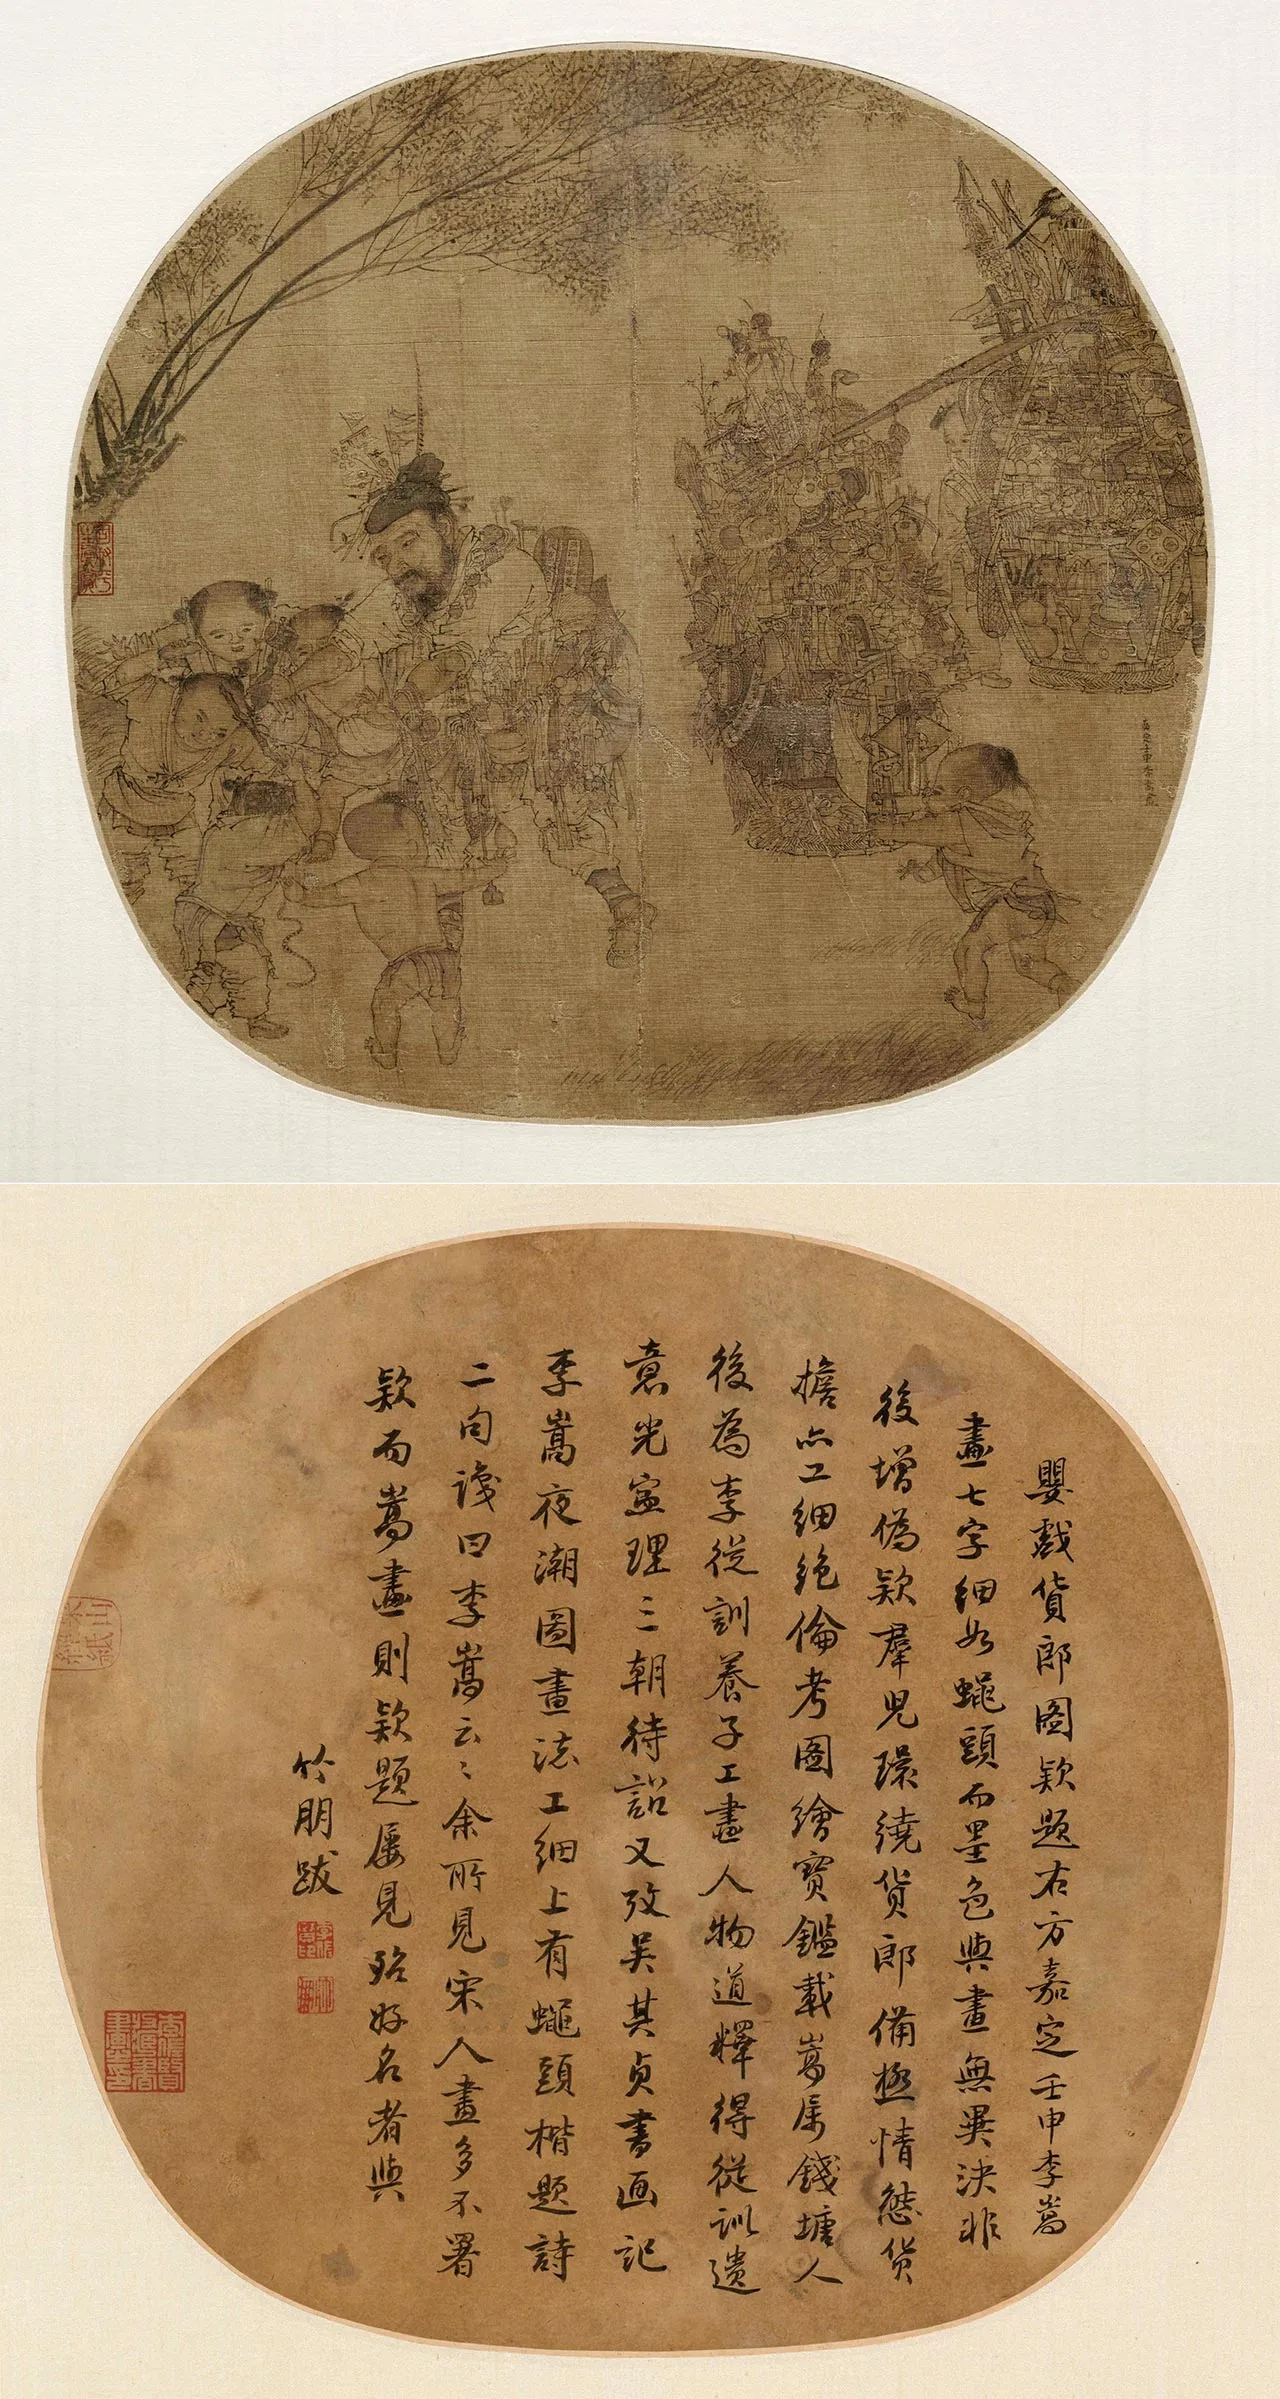 嘉定壬申李嵩畫
嬰戲貨郎圖欵題右方嘉定壬申李嵩
畫七字細如蠅頭而墨色與畫無異決非
後增偽欵羣兒環繞貨郎備極情態貨
擔亦工細絶倫考圖繪寶鑑載嵩屬錢塘人
後為李從訓養子工畫人物道釋得從訓遺
意光寧理三朝待詔又攷吴其貞書画記
李嵩夜潮圖畫法工細上有蠅頭楷題詩
二句識曰李嵩云〻余所見宋人畫多不署
欵而嵩畫則欵題屢見殆好名者與
竹朋跋